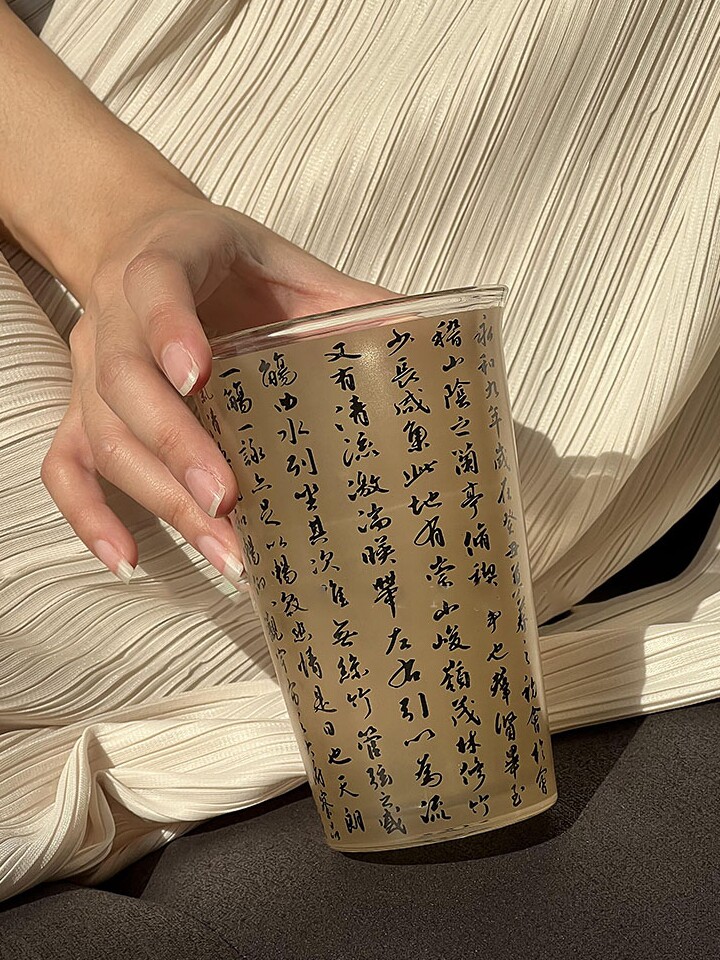 永和九年歲在癸丑暮春之初會於會
稽山陰之蘭亭脩禊事也羣賢畢至
少長咸集此地有崇山峻嶺茂林脩竹
又有清流激湍暎帶左右引以為流
觴曲水列坐其次雖無絲竹管弦之盛
一觴一詠亦足以暢敘幽情是日也天朗
氣清和暢仰觀宇宙之大俯察品